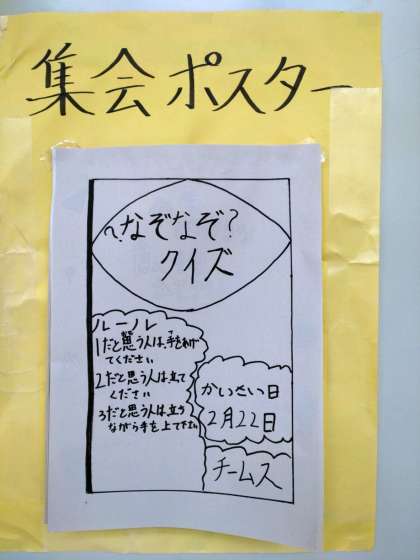 集会ポスター
?なぞなぞ?
クイズ
ルール
1だと思う人は、手をあげ
てください
2だと思う人は立て
ください
3だと思う人は立ち
ながら手を上て下さい
かいさい日
2月22日
チームス